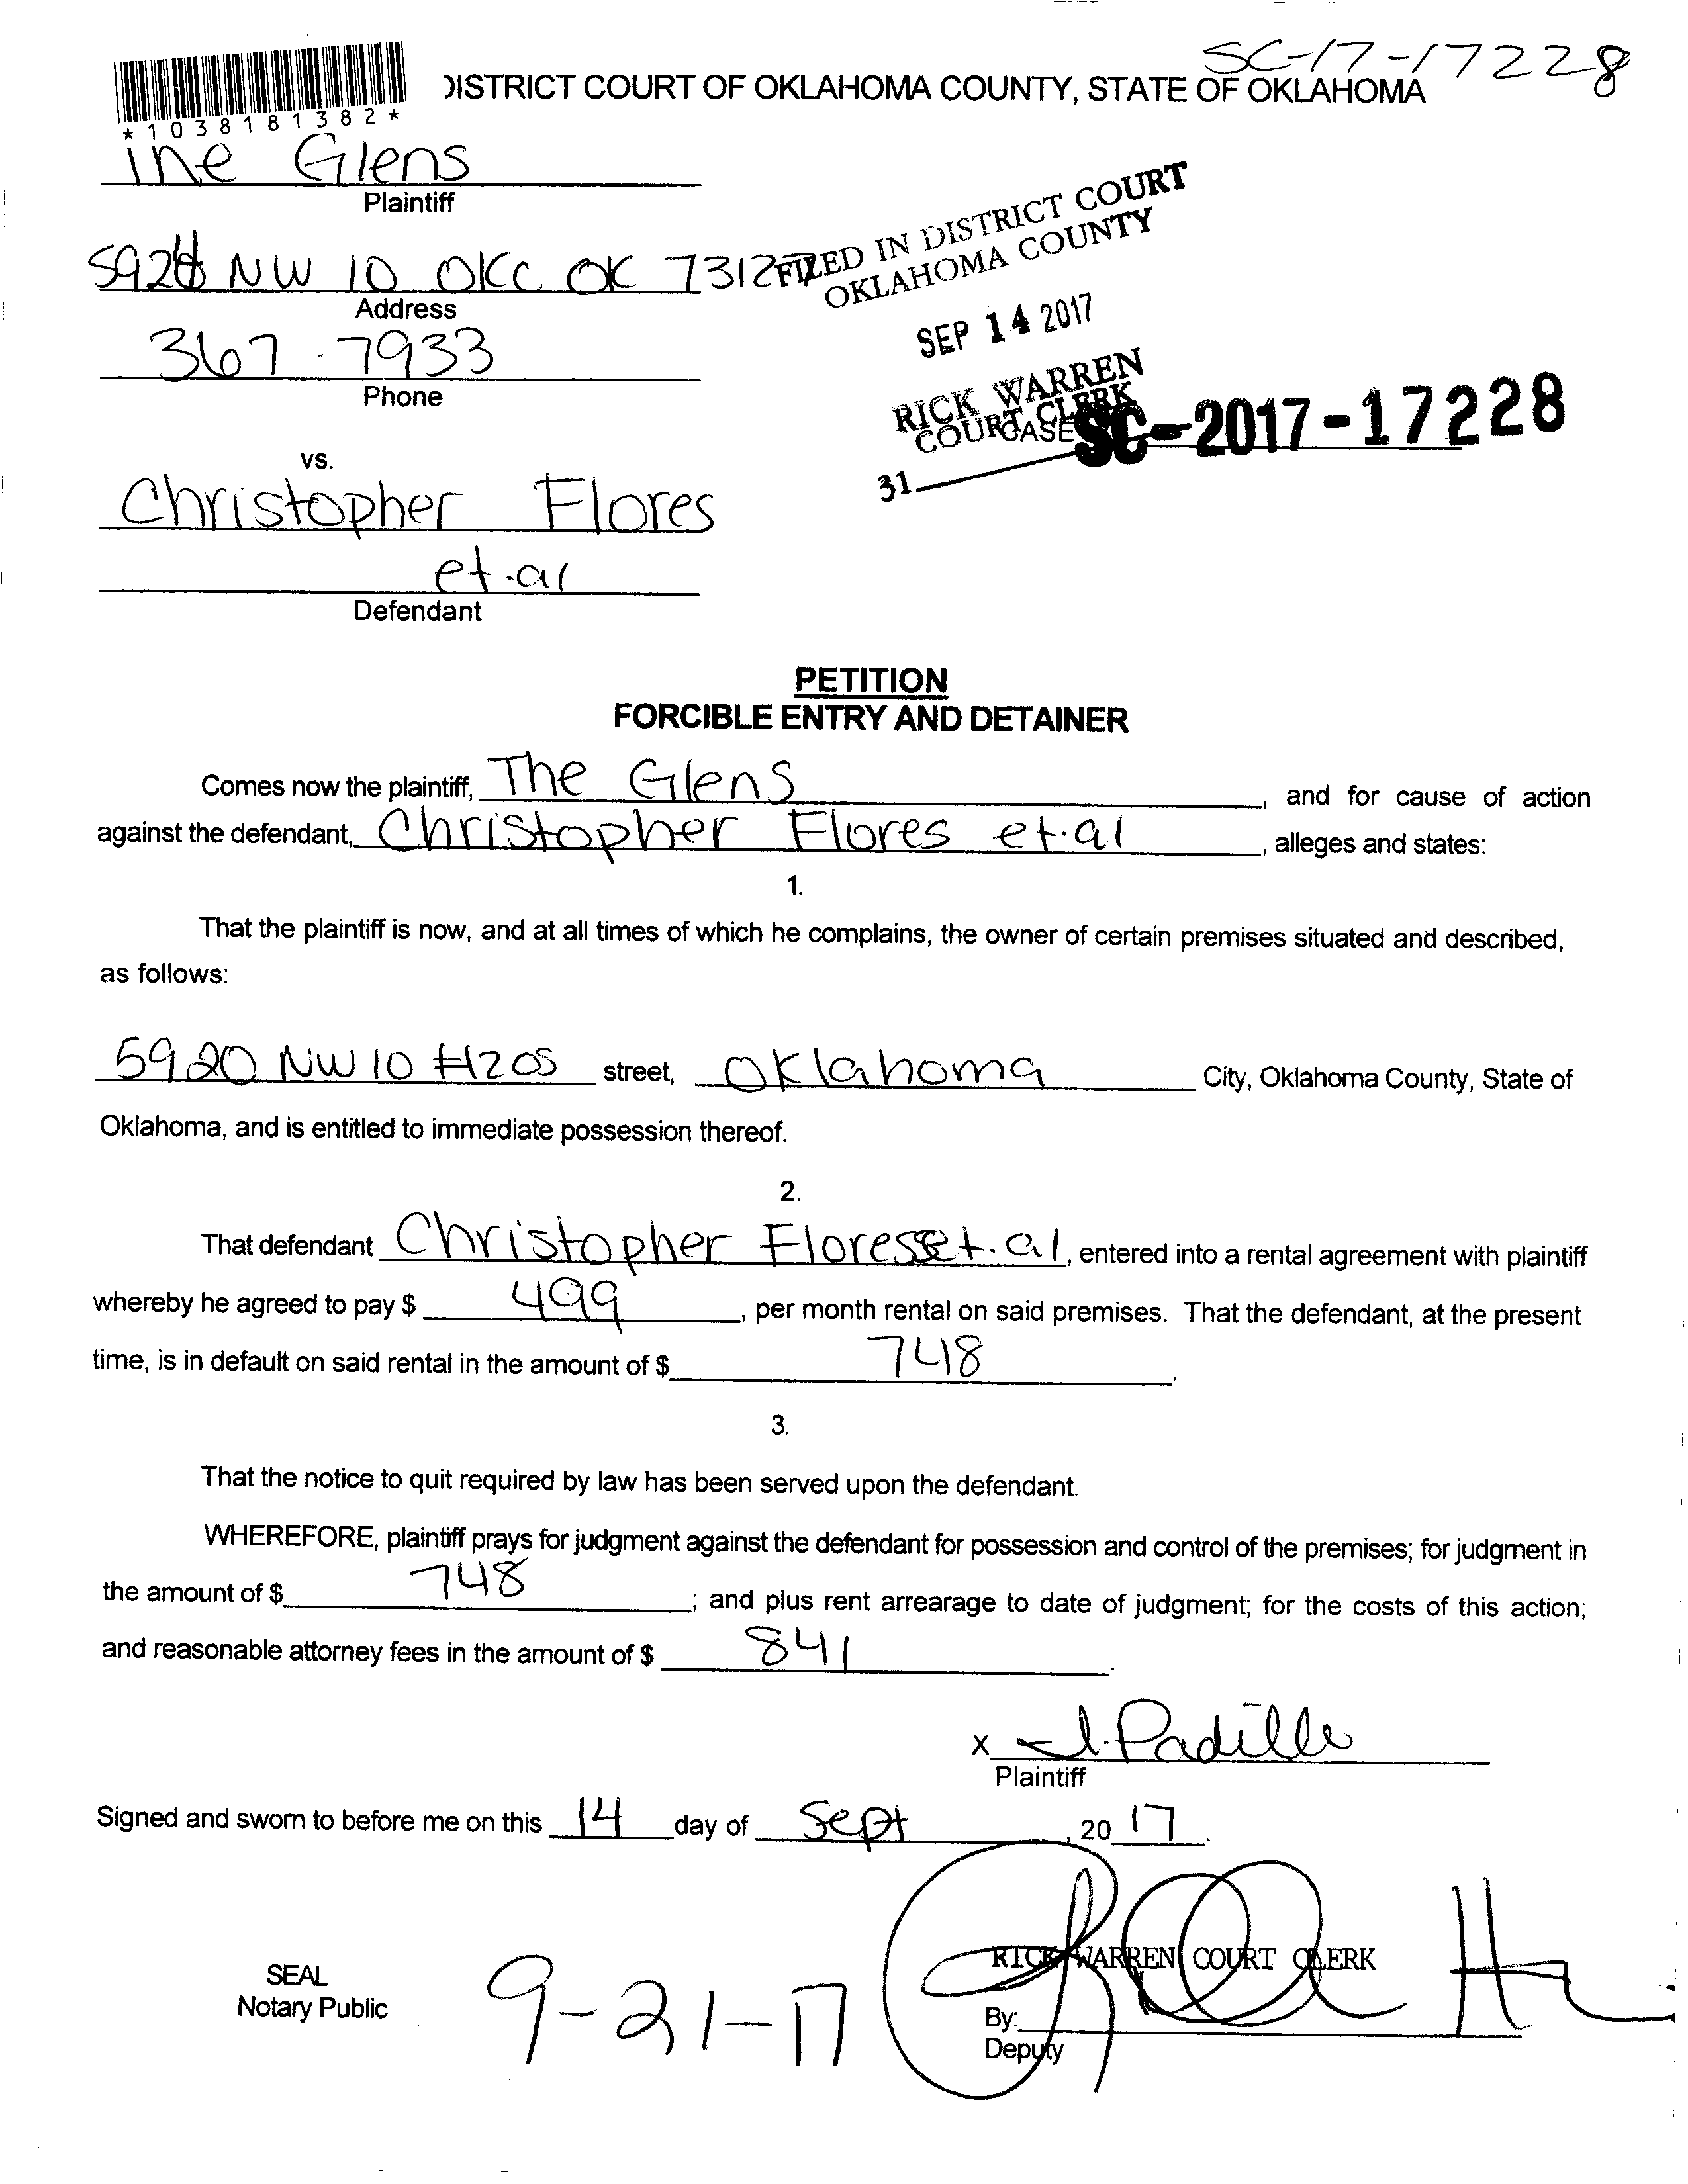 SC-17-17228
DISTRICT COURT OF OKLAHOMA COUNTY, STATE OF OKLAHOMA
*1038181382*
The Glens
Plaintiff
NW 10 OKC OK 73127
Address
367.7933
Phone
FILED IN DISTRICT COURT
OKLAHOMA COUNTY
SEP 14 2017
RICK WARREN
COURT CLERK
CASE SC-2017-17228
31
vs.
Christopher Flores
et.al
Defendant
PETITION
FORCIBLE ENTRY AND DETAINER
Comes now the plaintiff, The Glens, and for cause of action
against the defendant, Christopher Flores et.al, alleges and states:
1.
That the plaintiff is now, and at all times of which he complains, the owner of certain premises situated and described,
as follows:
5920 NW 10 #120S street, Oklahoma City, Oklahoma County, State of
Oklahoma, and is entitled to immediate possession thereof.
2.
That defendant Christopher Flores et.al, entered into a rental agreement with plaintiff
whereby he agreed to pay $ 499, per month rental on said premises. That the defendant, at the present
time, is in default on said rental in the amount of $ 748.
3.
That the notice to quit required by law has been served upon the defendant.
WHEREFORE, plaintiff prays for judgment against the defendant for possession and control of the premises; for judgment in
the amount of $ 748; and plus rent arrearage to date of judgment; for the costs of this action;
and reasonable attorney fees in the amount of $ 841.
X Padilla
Plaintiff
Signed and sworn to before me on this 14 day of Sept, 2017.
RICK WARREN COURT CLERK
SEAL
Notary Public
9-21-17
By:
Deputy